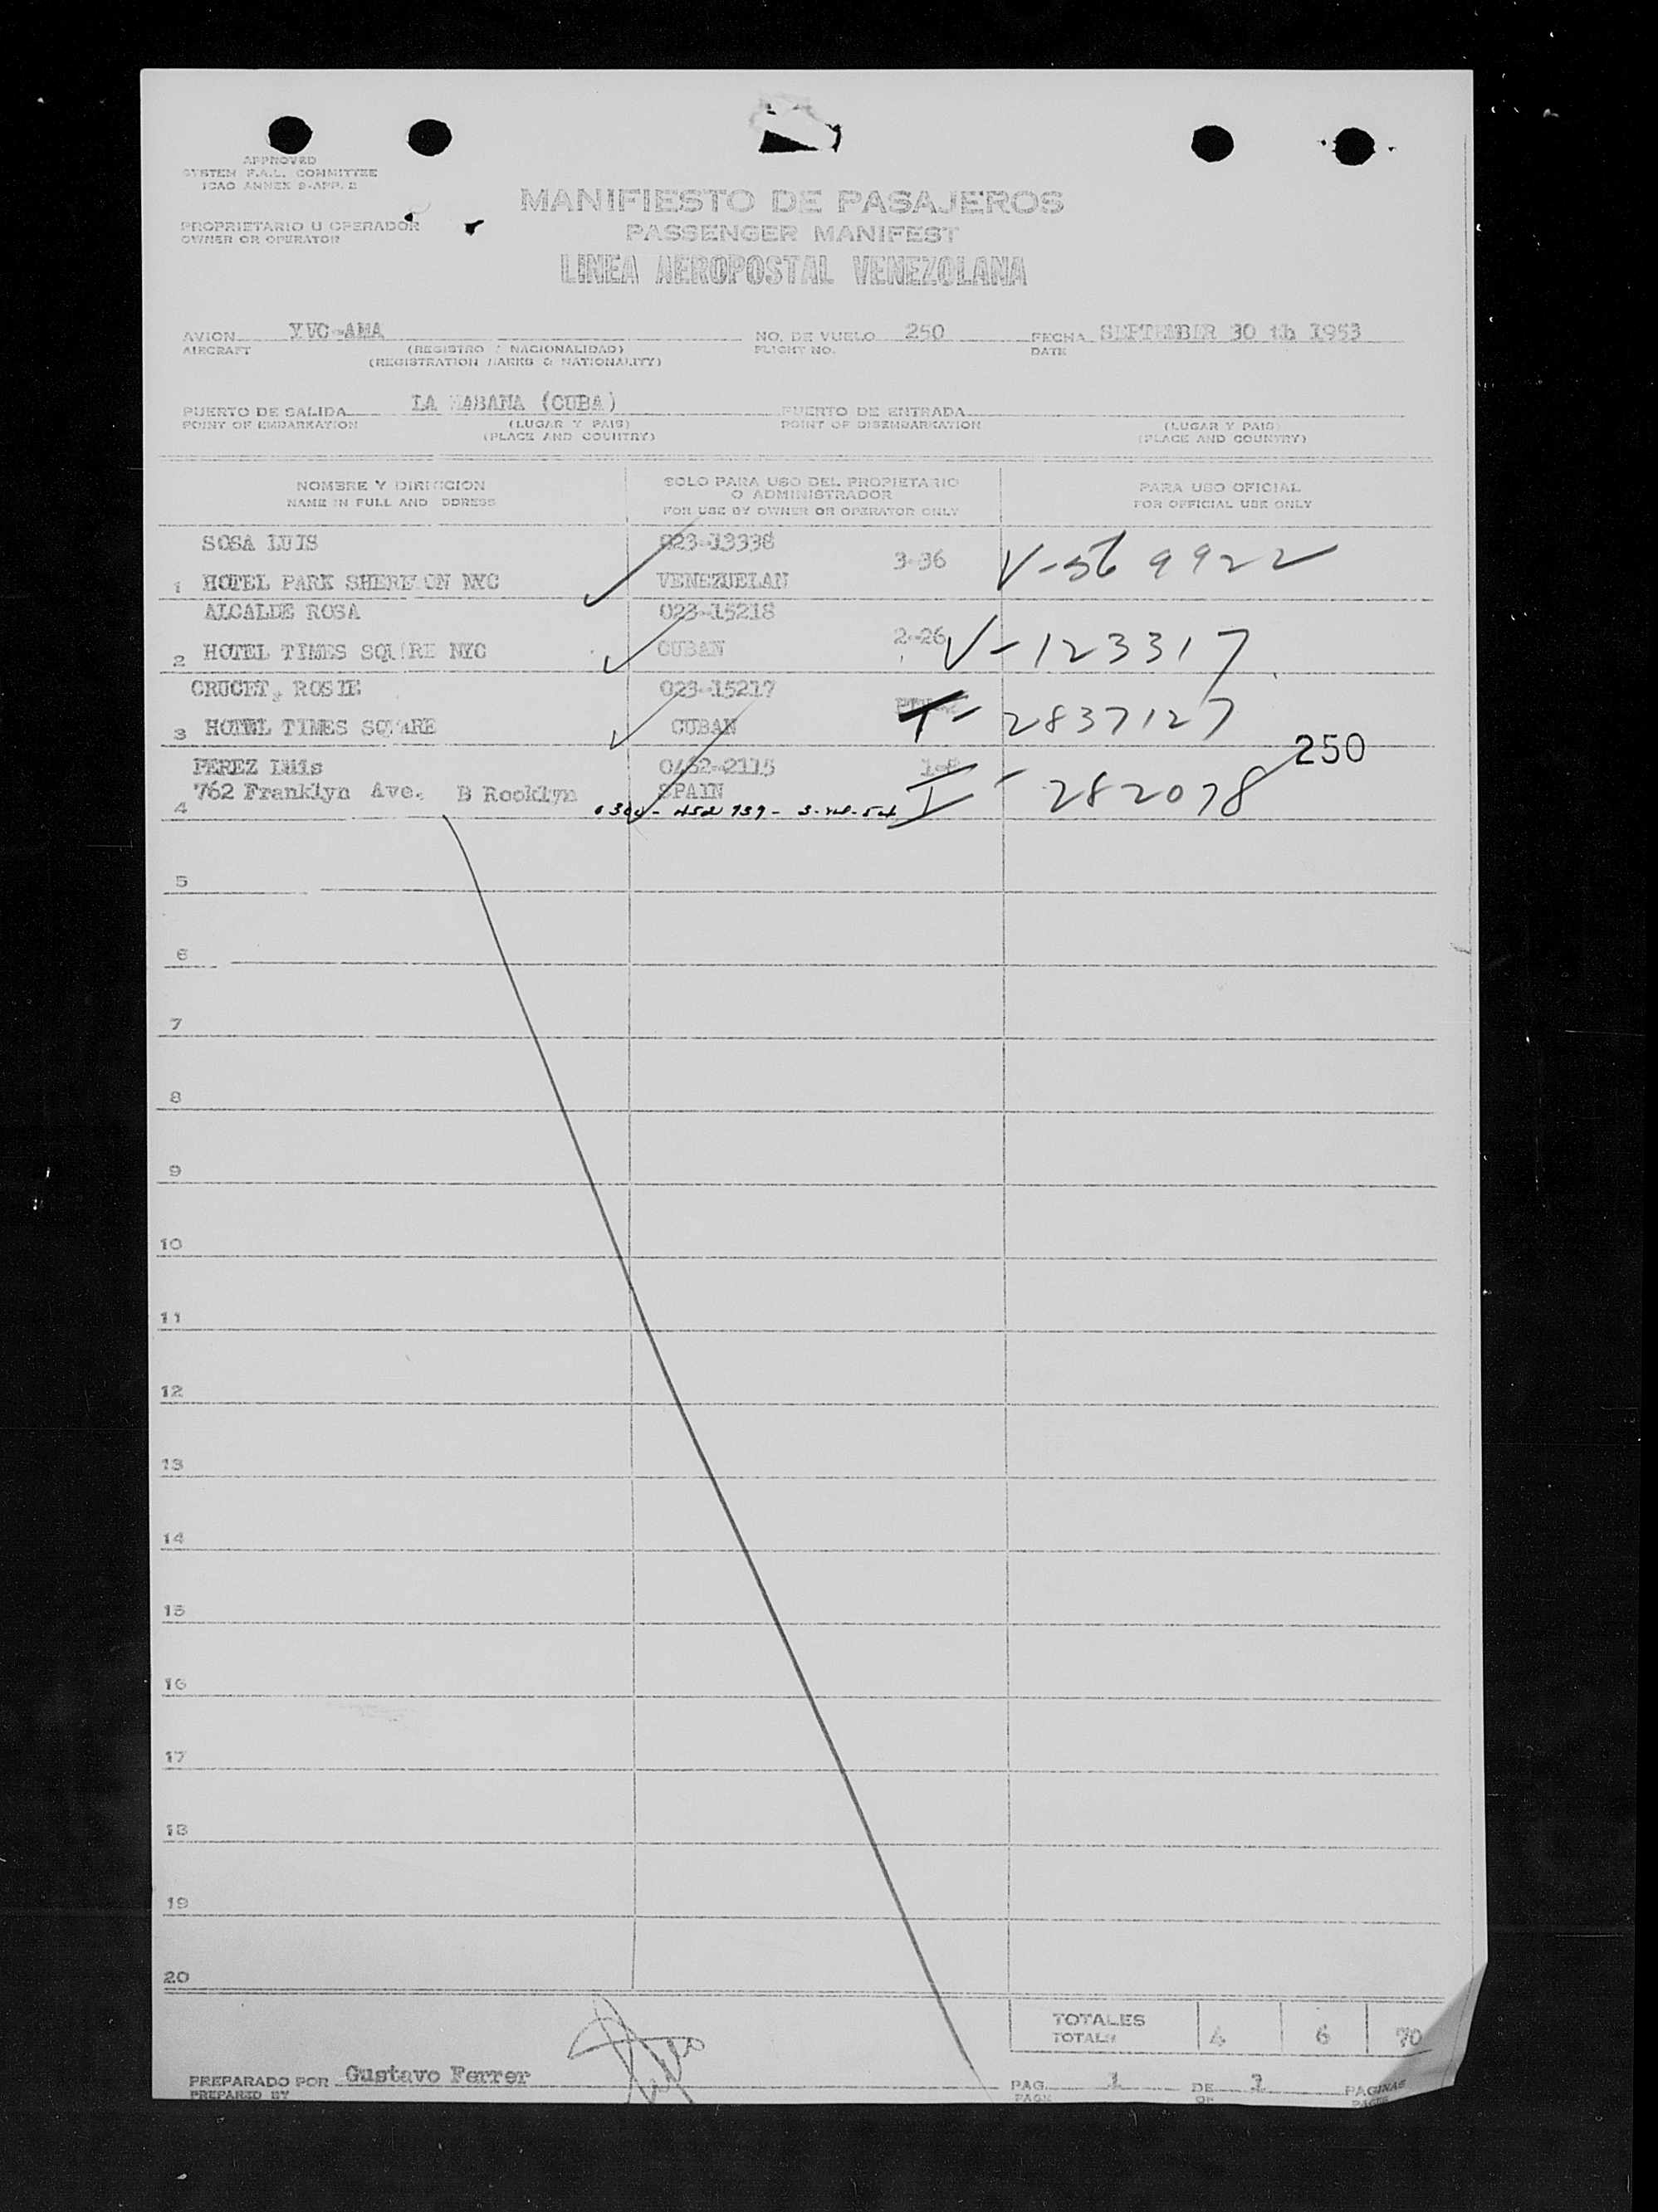 APPROVED
SYSTEM F.A.L. COMMITTEE
ICAO ANNEX 9-APP. B
MANIFIESTO DE PASAJEROS
PROPRIETARIO U OPERADOR
OWNER OR OPERATOR
PASSENGER MANIFEST
LINEA AEROPOSTAL VENEZOLANA
AVION YVC-AMA NO. DE VUELO 250 FECHA SEPTEMBER 30 th 1953
AIRCRAFT (REGISTRO Y NACIONALIDAD) FLIGHT NO. DATE
(REGISTRATION MARKS & NATIONALITY)
PUERTO DE SALIDA LA HABANA (CUBA) PUERTO DE ENTRADA
POINT OF EMBARKATION (LUGAR Y PAIS) POINT OF DISEMBARKATION (LUGAR Y PAIS)
(PLACE AND COUNTRY) (PLACE AND COUNTRY)
NOMBRE Y DIRECCION SOLO PARA USO DEL PROPIETARIO PARA USO OFICIAL
O ADMINISTRADOR
NAME IN FULL AND ADDRESS FOR USE BY OWNER OR OPERATOR ONLY FOR OFFICIAL USE ONLY
SOSA LUIS 023-13398
3-36 V-569922
1 HOTEL PARK SHERETON NYC VENEZUELAN
ALCALDE ROSA 023-15218
2-26 V-123317
2 HOTEL TIMES SQUARE NYC CUBAN
CRUCET, ROSIE 023-15217
T-2837127
3 HOTEL TIMES SQUARE CUBAN
250
PEREZ Luis 0452-2115
762 Franklyn Ave. B Rooklyn SPAIN I-282078
4
5
6
7
8
9
10
11
12
13
14
15
16
17
18
19
20
TOTALES 4 6 70
TOTALS
PREPARADO POR Gustavo Ferrer PAG. 1 DE 1 PAGINAS
PREPARED BY PAGE OF PAGES